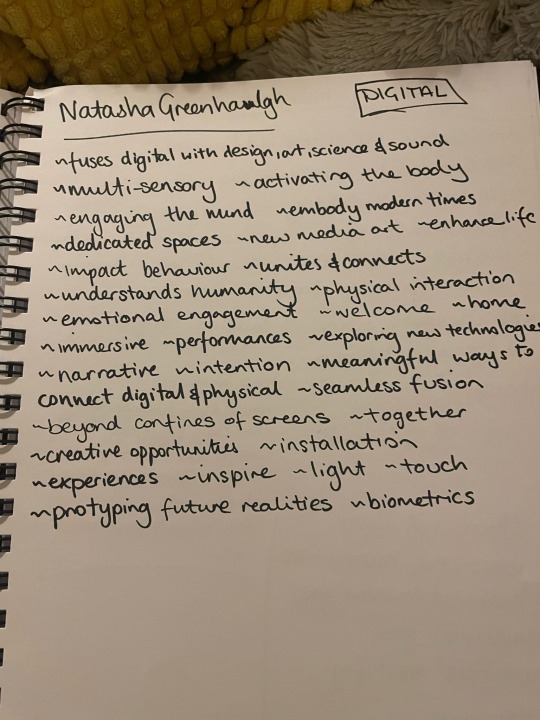 Natasha Greenhalgh DIGITAL
~fuses digital with design, art, science & sound
~multi-sensory ~activating the body
~engaging the mind ~embody modern times
~dedicated spaces ~new media art ~enhance life
~impact behaviour ~unites & connects
~understands humanity ~physical interaction
~emotional engagement ~welcome ~home
~immersive ~performances ~exploring new technologies
~narrative ~intention ~meaningful ways to
connect digital & physical ~seamless fusion
~beyond confines of screens ~together
~creative opportunities ~installation
~experiences ~inspire ~light ~touch
~protyping future realities ~biometrics